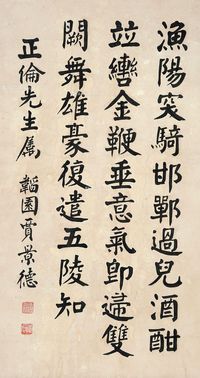 漁陽突騎邯鄲過兒酒酣
竝轡金鞭垂意氣即歸雙
闕舞雄豪復遣五陵知
正倫先生属 韜園賈景德